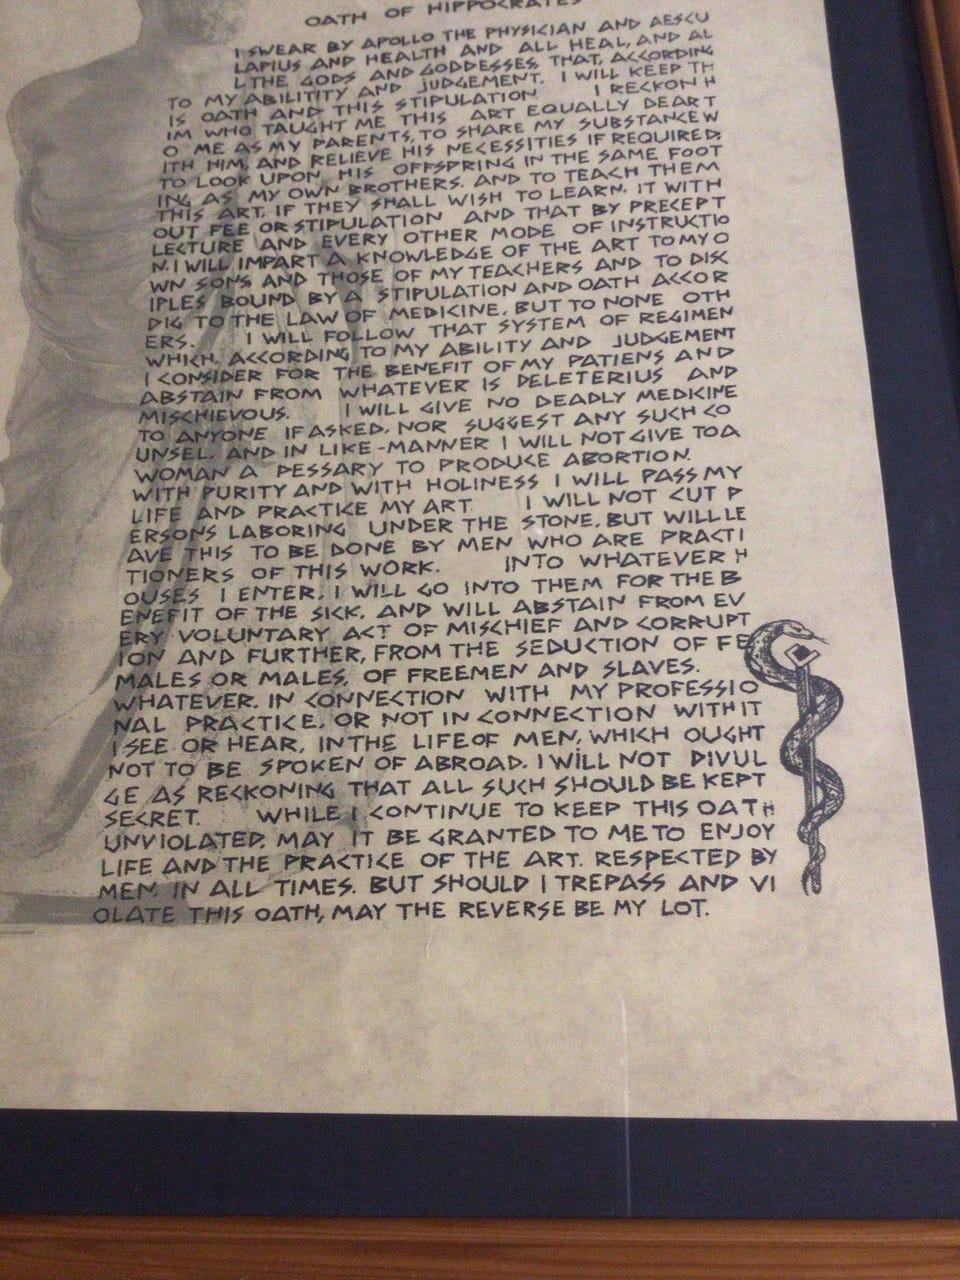 OATH OF HIPPOCRATES
I SWEAR BY APOLLO THE PHYSICIAN AND AESCU
LAPIUS AND HEALTH AND ALL HEAL, AND AL
L THE GODS AND GODDESSES, THAT, ACCORDING
TO MY ABILITITY AND JUDGEMENT. I WILL KEEP TH
IS OATH AND THIS STIPULATION I RECKON H
IM WHO TAUGHT ME THIS ART EQUALLY DEAR T
O ME AS MY PARENTS, TO SHARE MY SUBSTANCE W
ITH HIM, AND RELIEVE HIS NECESSITIES IF REQUIRED,
TO LOOK UPON HIS OFFSPRING IN THE SAME FOOT
ING AS MY OWN BROTHERS. AND TO TEACH THEM
THIS ART. IF THEY SHALL WISH TO LEARN. IT WITH
OUT FEE OR STIPULATION AND THAT BY PRECEPT
LECTURE AND EVERY OTHER MODE OF INSTRUCTIO
N. I WILL IMPART A KNOWLEDGE OF THE ART TO MY O
WN SONS AND THOSE OF MY TEACHERS AND TO DISC
IPLES BOUND BY A STIPULATION AND OATH ACCOR
DIG TO THE LAW OF MEDICINE, BUT TO NONE OTH
ERS. I WILL FOLLOW THAT SYSTEM OF REGIMEN
WHICH, ACCORDING TO MY ABILITY AND JUDGEMENT
I CONSIDER FOR THE BENEFIT OF MY PATIENS AND
ABSTAIN FROM WHATEVER IS DELETERIUS AND
MISCHIEVOUS. I WILL GIVE NO DEADLY MEDICINE
TO ANYONE IF ASKED, NOR SUGGEST ANY SUCH CO
UNSEL, AND IN LIKE-MANNER I WILL NOT GIVE TO A
WOMAN A PESSARY TO PRODUCE ABORTION.
WITH PURITY AND WITH HOLINESS I WILL PASS MY
LIFE AND PRACTICE MY ART I WILL NOT CUT P
ERSONS LABORING UNDER THE STONE, BUT WILL LE
AVE THIS TO BE DONE BY MEN WHO ARE PRACTI
TIONERS OF THIS WORK. INTO WHATEVER H
OUSES I ENTER, I WILL GO INTO THEM FOR THE B
ENEFIT OF THE SICK, AND WILL ABSTAIN FROM EV
ERY VOLUNTARY ACT OF MISCHIEF AND CORRUPT
ION AND FURTHER, FROM THE SEDUCTION OF FE
MALES OR MALES, OF FREEMEN AND SLAVES.
WHATEVER, IN CONNECTION WITH MY PROFESSIO
NAL PRACTICE, OR NOT IN CONNECTION WITH IT
I SEE OR HEAR, IN THE LIFE OF MEN, WHICH OUGHT
NOT TO BE SPOKEN OF ABROAD. I WILL NOT DIVUL
GE AS RECKONING THAT ALL SUCH SHOULD BE KEPT
SECRET. WHILE I CONTINUE TO KEEP THIS OATH
UNVIOLATED, MAY IT BE GRANTED TO ME TO ENJOY
LIFE AND THE PRACTICE OF THE ART. RESPECTED BY
MEN IN ALL TIMES. BUT SHOULD I TREPASS AND VI
OLATE THIS OATH, MAY THE REVERSE BE MY LOT.